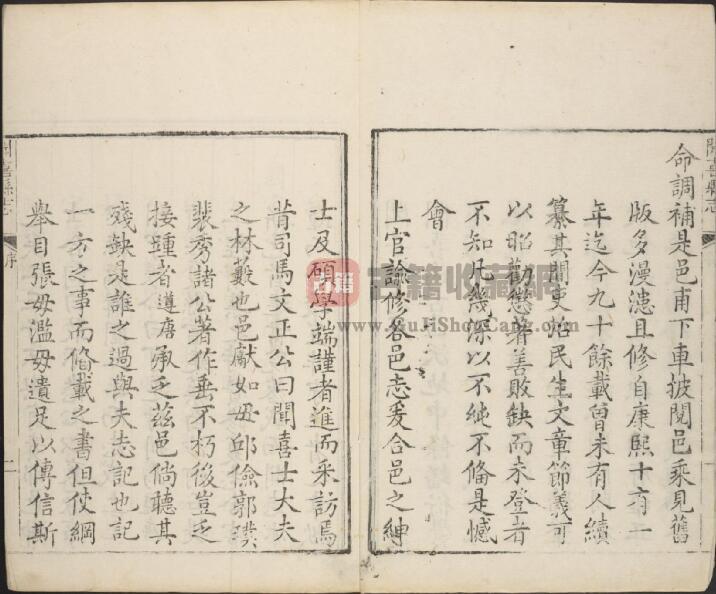 聞喜縣志
命調補是邑甫下車披閱邑乘見舊
版多漫漶且修自康熙十有一
年迄今九十餘載曾未有人續
纂其間吏治民生文章節義可
以昭勸懲著善敗缺而未登者
不知凡幾深以不純不偹是憾
會
上官諭修各邑志爰合邑之紳
士及碩學端謹者進而采訪焉
昔司馬文正公曰聞喜士大夫
之林藪也邑獻如毋邱儉郭璞
裴秀諸公著作垂不朽後豈乏
接踵者遵唐承乏茲邑倘聽其
殘缺是誰之過與夫志記也記
一方之事而偹載之書但使綱
舉目張毋濫毋遺足以傳信斯
聞喜縣志
序
二
古籍
古籍收藏網
www.GuJiShouCang.com